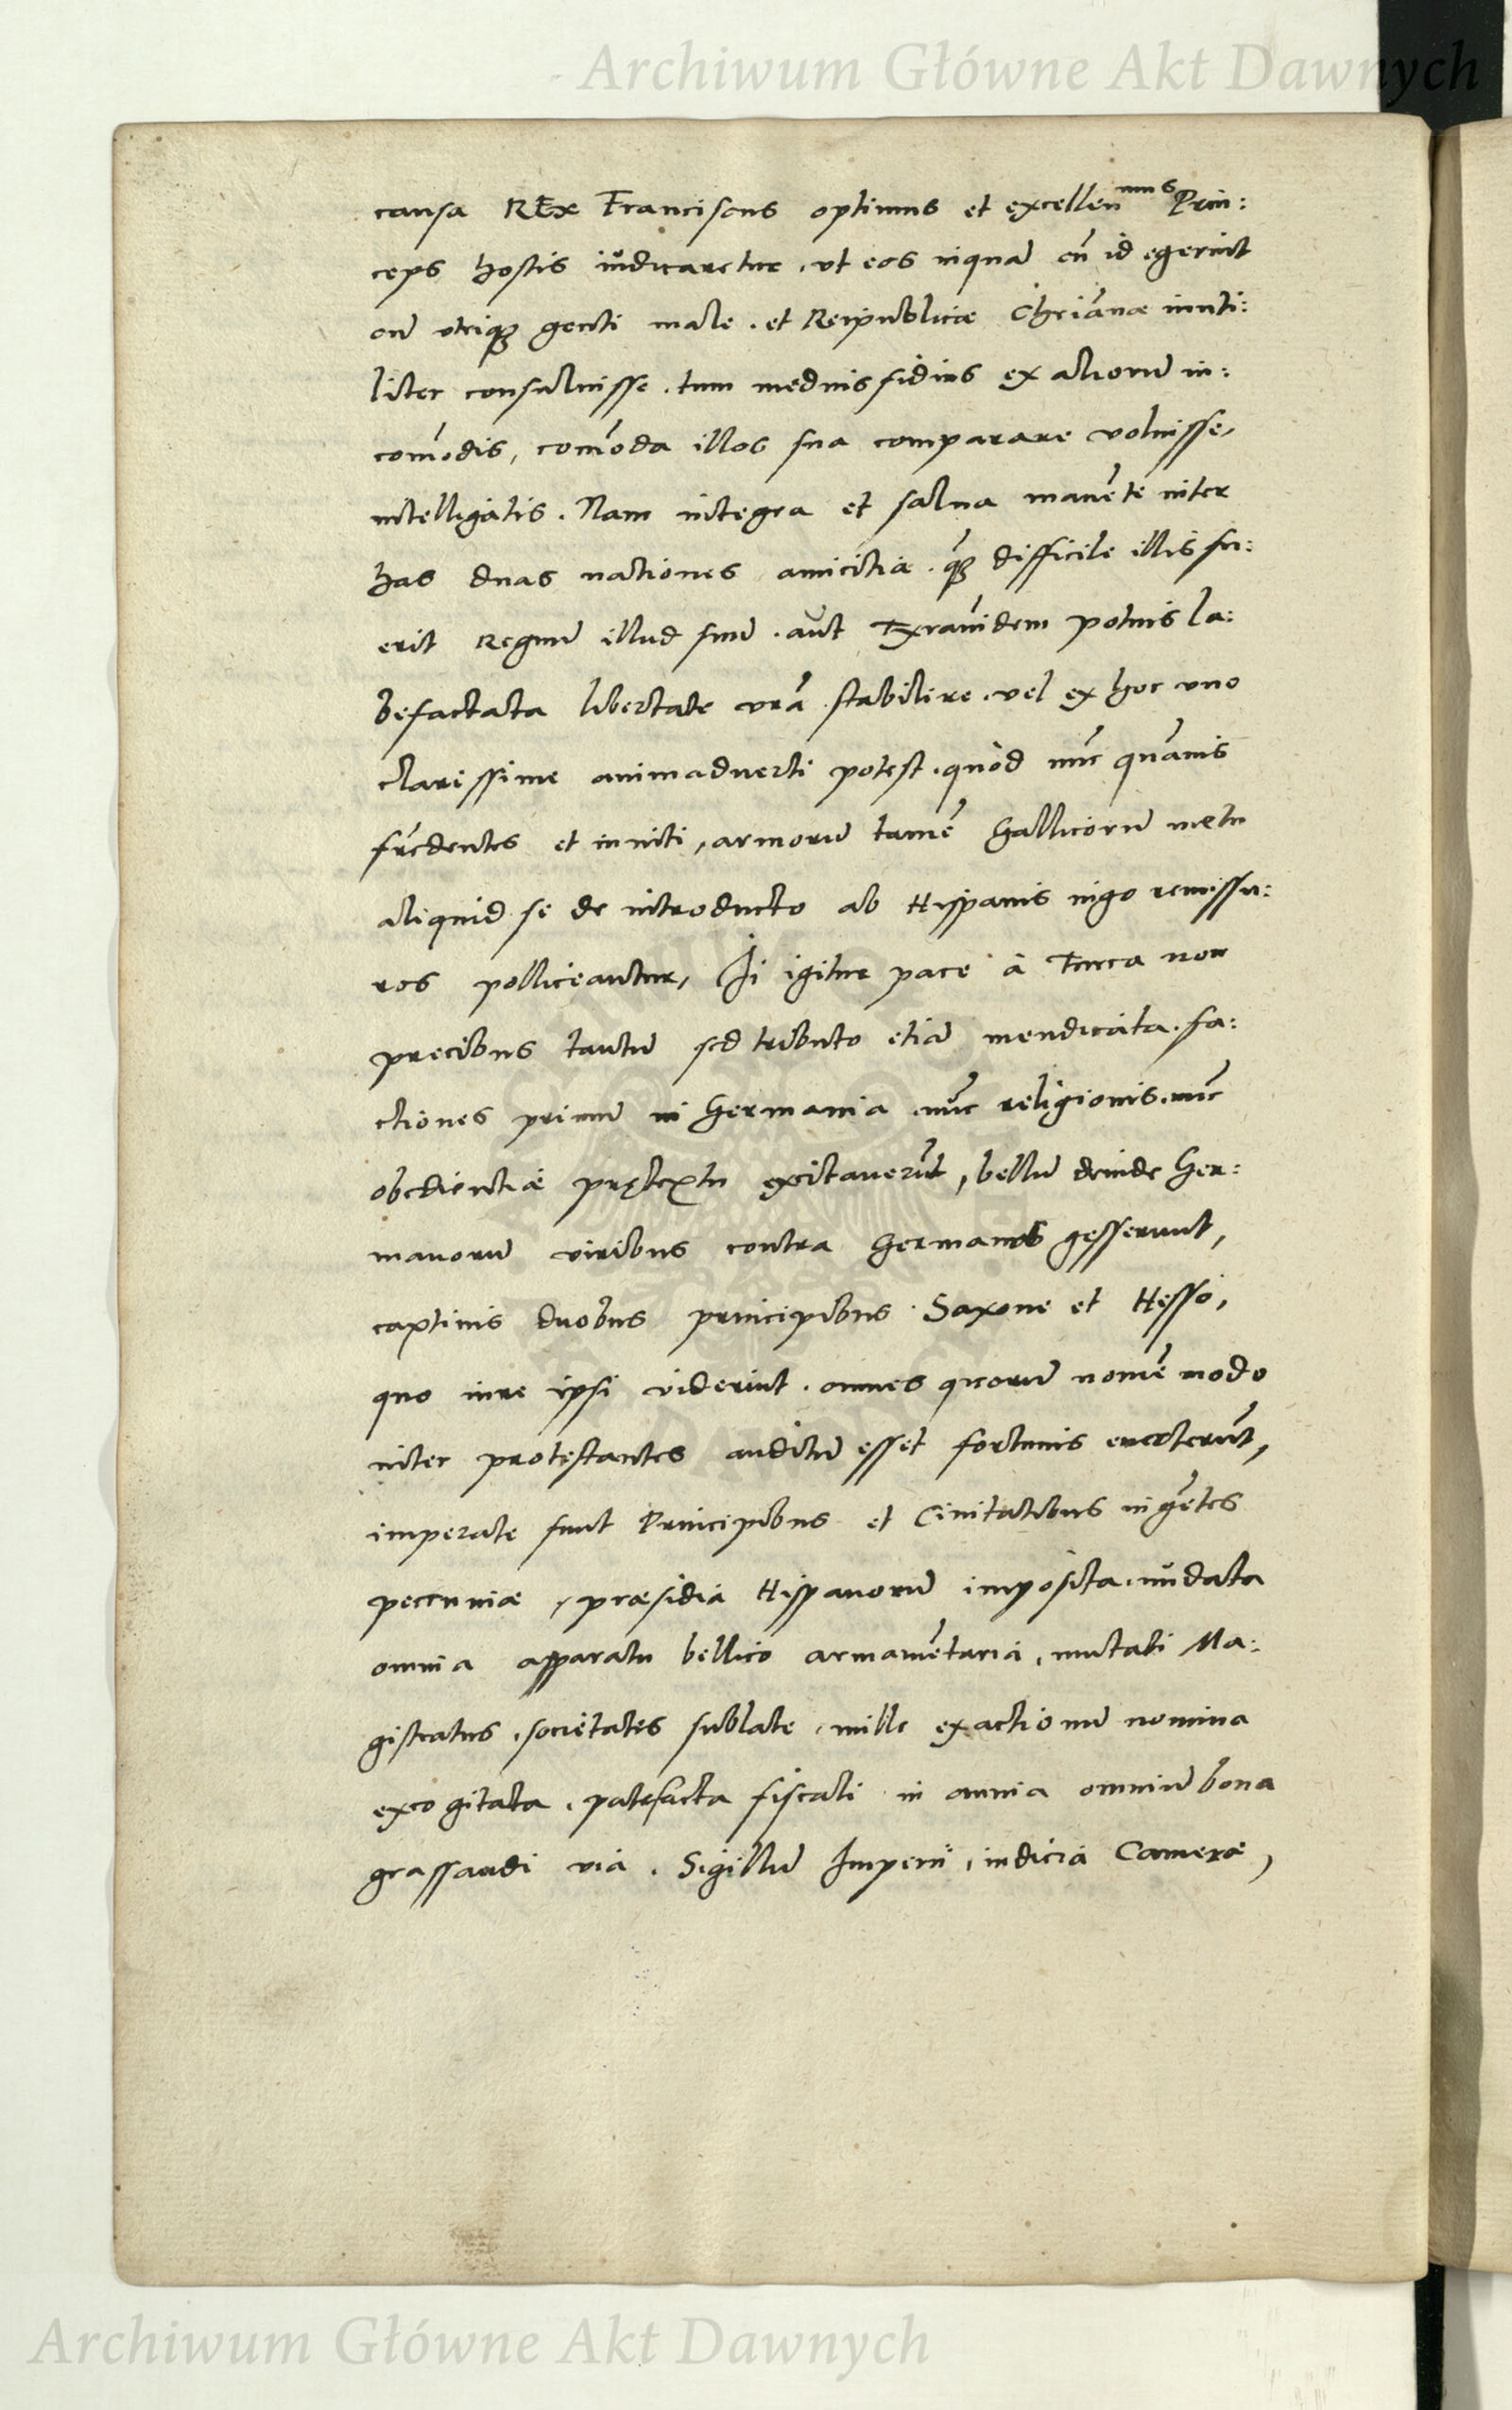 Archiwum Główne Akt Dawnych
causa REx Franciscus optimus et excellen^mus Prin:
ceps hostis iudicaretur, ut eos inquam cũ id egerint
cũ utriqꝫ genti male, et Reipublicæ Chriãnæ inuti:
liter consuluisse, tum mediusfidius ex aliorũ in:
com̃odis, com̃oda illos sua comparare voluisse,
intelligatis. Nam integra et salua manẽte inter
has duas nationes amicitia, difficile illis fu:
erit Regnũ illud suũ, aut Tyrannidem potius la:
befactata libertate vrã stabilire, vel ex hoc uno
clarissime animaduerti potest, quòd nũc quãuis
frẽdentes et inuiti, armorũ tamẽ Gallicorũ metu
aliquid se de introducto ab Hispanis iugo remissu:
ros polliceantur, Ii igitur pace à Turca non
precibus tantũ sed tributo etiã mendicata, fa:
ctiones primũ in Germania, nũc religionis, nũc
obedientiæ prętextu excitauerũt, bellũ deinde Ger:
manorũ viribus contra Germanos gesserunt,
captiuis duobus principibus Saxone et Hesso,
quo iure ipsi viderint, omnes quorũ nomẽ modo
inter protestantes auditũ esset fortunis euerterũt,
imperate sunt Principibus et Ciuitatibus ingẽtes
pecuniæ, præsidia Hispanorũ imposita, nudata
omnia apparatu bellico armamẽtaria, mutati Ma:
gistratus, societates sublate, mille exactionũ nomina
excogitata, patefacta fiscali in omnia omniũ bona
grassandi via, Sigillũ Imperii, iudicia Cameræ,
Archiwum Główne Akt Dawnych